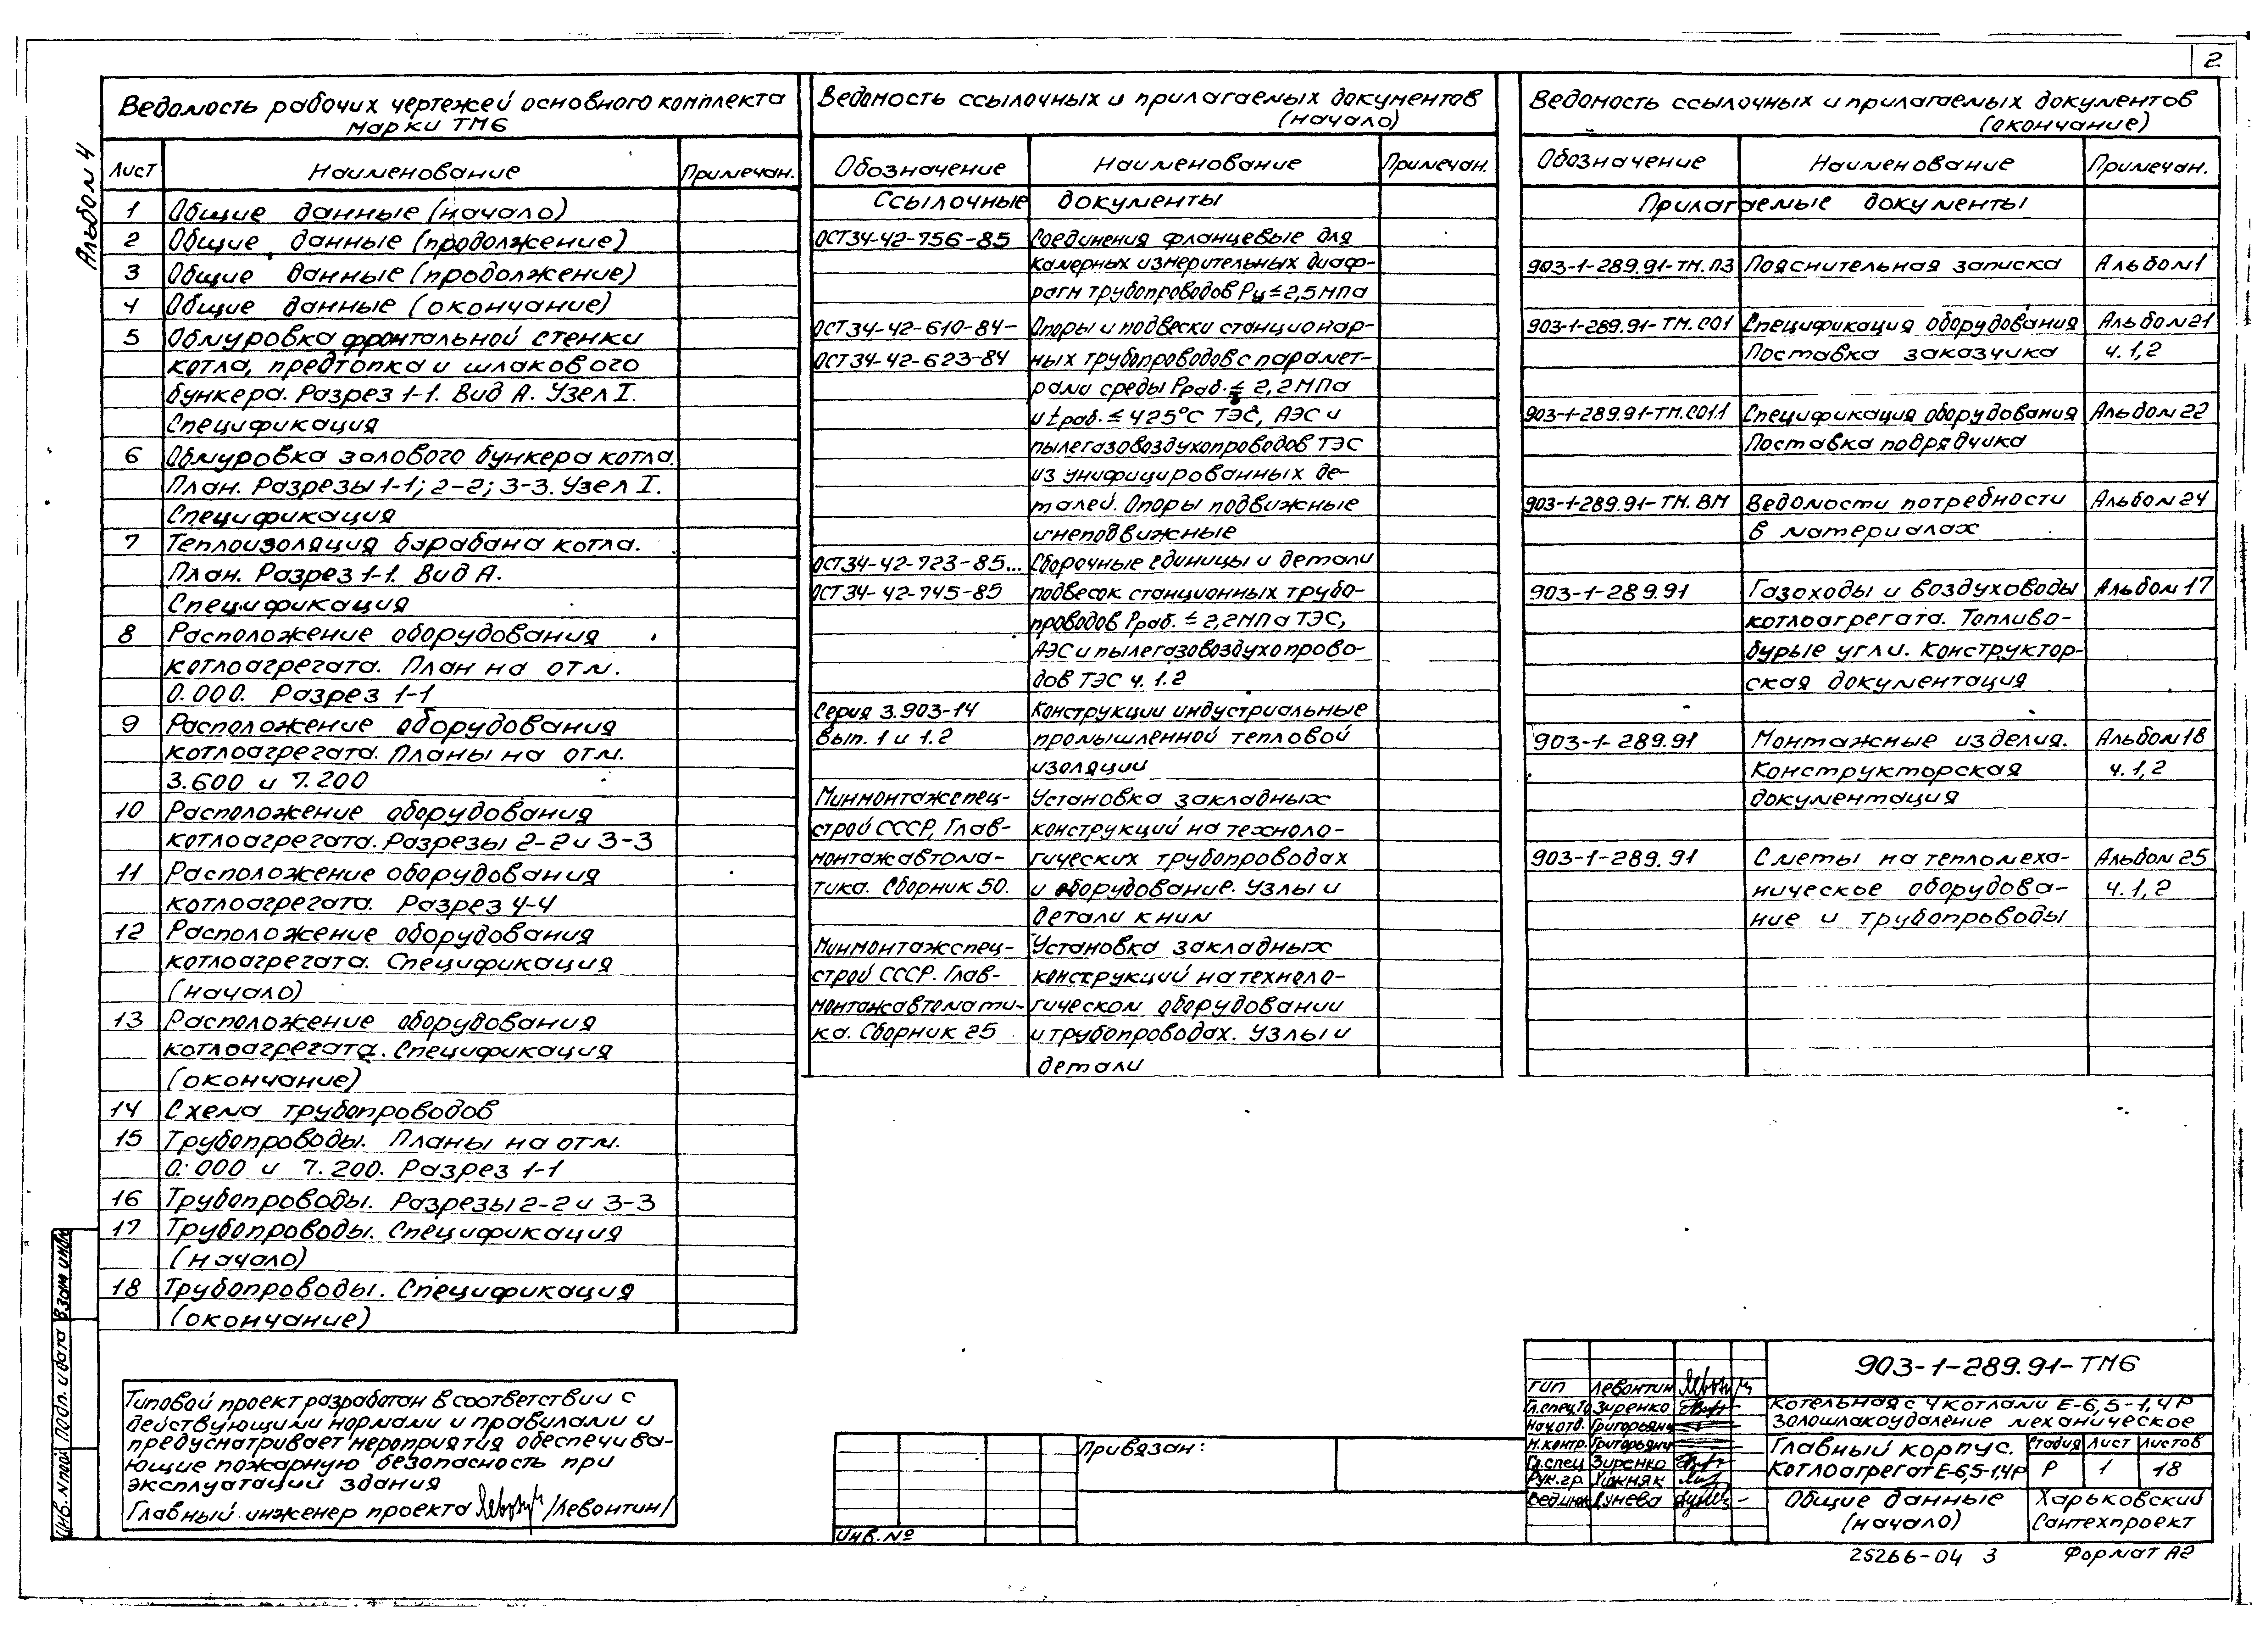 2
Альбом 4
Ведомость рабочих чертежей основного комплекта
марки ТМ6
Лист Наименование Примечан.
1 Общие данные (начало)
2 Общие данные (продолжение)
3 Общие данные (продолжение)
4 Общие данные (окончание)
5 Обмуровка фронтальной стенки
котла, предтопка и шлакового
бункера. Разрез 1-1. Вид А. Узел I.
Спецификация
6 Обмуровка золового бункера котла.
План. Разрезы 1-1; 2-2; 3-3. Узел I.
Спецификация
7 Теплоизоляция барабана котла.
План. Разрез 1-1. Вид А.
Спецификация
8 Расположение оборудования
котлоагрегата. План на отм.
0.000. Разрез 1-1
9 Расположение оборудования
котлоагрегата. Планы на отм.
3.600 и 7.200
10 Расположение оборудования
котлоагрегата. Разрезы 2-2 и 3-3
11 Расположение оборудования
котлоагрегата. Разрез 4-4
12 Расположение оборудования
котлоагрегата. Спецификация
(начало)
13 Расположение оборудования
котлоагрегата. Спецификация
(окончание)
14 Схема трубопроводов
15 Трубопроводы. Планы на отм.
0.000 и 7.200. Разрез 1-1
16 Трубопроводы. Разрезы 2-2 и 3-3
17 Трубопроводы. Спецификация
(начало)
18 Трубопроводы. Спецификация
(окончание)
Ведомость ссылочных и прилагаемых документов
(начало)
Обозначение Наименование Примечан.
Ссылочные документы
ОСТ 34-42-756-85 Соединения фланцевые для
камерных измерительных диаф-
рагм трубопроводов Ру ≤ 2,5 МПа
ОСТ 34-42-610-84- Опоры и подвески стационар-
ОСТ 34-42-623-84 ных трубопроводов с парамет-
рами среды Рраб. ≤ 2,2 МПа
и tраб. ≤ 425°С ТЭС, АЭС и
пылегазовоздухопроводов ТЭС
из унифицированных де-
талей. Опоры подвижные
и неподвижные
ОСТ 34-42-723-85... Сборочные единицы и детали
ОСТ 34-42-745-85 подвесок станционных трубо-
проводов Рраб. ≤ 2,2 МПа ТЭС,
АЭС и пылегазовоздухопрово-
дов ТЭС ч. 1.2
Серия 3.903-14 Конструкции индустриальные
Вып. 1 и 1.2 промышленной тепловой
изоляции
Минмонтажспец- Установка закладных
строй СССР, Глав- конструкций на техноло-
монтажавтома- гических трубопроводах
тика. Сборник 50. и оборудование. Узлы и
детали к ним
Минмонтажспец- Установка закладных
строй СССР. Глав- конструкций на техноло-
монтажавтомати- гическом оборудовании
ка. Сборник 25 и трубопроводах. Узлы и
детали
Ведомость ссылочных и прилагаемых документов
(окончание)
Обозначение Наименование Примечан.
Прилагаемые документы
903-1-289.91-ТМ.ПЗ Пояснительная записка Альбом 1
903-1-289.91-ТМ.СО1 Спецификация оборудования Альбом 21
Поставка заказчика ч. 1,2
903-1-289.91-ТМ.СО1.1 Спецификация оборудования Альбом 22
Поставка подрядчика
903-1-289.91-ТМ.ВМ Ведомости потребности Альбом 24
в материалах
903-1-289.91 Газоходы и воздуховоды Альбом 17
котлоагрегата. Топливо-
бурые угли. Конструктор-
ская документация
903-1-289.91 Монтажные изделия. Альбом 18
Конструкторская ч. 1,2
документация
903-1-289.91 Сметы на тепломеха- Альбом 25
ническое оборудова- ч. 1,2
ние и трубопроводы
Типовой проект разработан в соответствии с
действующими нормами и правилами и
предусматривает мероприятия обеспечива-
ющие пожарную безопасность при
эксплуатации здания
Главный инженер проекта /Левонтин/
Инв. № подл Подп. и дата Взам инв №
Привязан:
Инв. №
ГИП Левонтин
Гл.спец.То Зиренко
Нач.отд. Григорьянц
Н.контр. Григорьянц
Гл.спец Зиренко
Рук.гр. Хижняк
Вед.инж Дунева
903-1-289.91-ТМ6
Котельная с 4 котлами Е-6,5-1,4Р
Золошлакоудаление механическое
Главный корпус. Стадия Лист Листов
Котлоагрегат Е-6,5-1,4Р Р 1 18
Общие данные Харьковский
(начало) Сантехпроект
25266-04 3 Формат А2